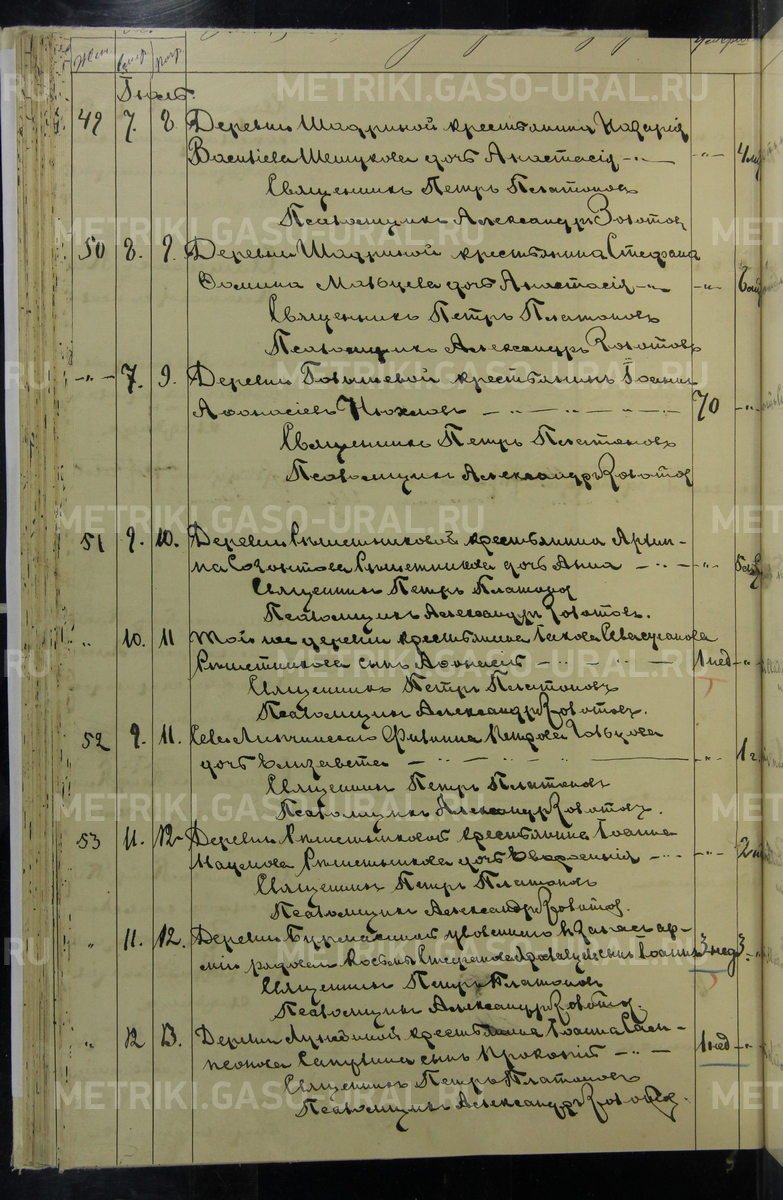 Жен. | смер. | погр.
Іюль.
49 7. 8 Деревни Шадриной крестьянина Назарія
Василіева Шешукова дочь Анастасія — " —
Священникъ Петръ Платоновъ
Псаломщикъ Александръ Золотов
50 8. 9. Деревни Шадриной крестьянина Стефана
Ѳомина Мальцева дочь Анастасія — " —
Священникъ Петръ Платоновъ
Псаломщикъ Александръ Золотовъ
— " — 7. 9. Деревни крестьянинъ Іоаннъ
Аѳонасіевъ 70
Священникъ Петръ Платоновъ
Псаломщикъ Александръ Золотов
51 9. 10. Деревни Рѣшетниковой крестьянина Архип-
па Созонтова Рѣшетникова дочь Анна
Священникъ Петръ Платонов
Псаломщикъ Александръ Золотовъ.
" 10. 11 Той же деревни крестьянина Іакова
Рѣшетникова сынъ Аѳонасій 1 нед
Священникъ Петръ Платоновъ
Псаломщикъ Александръ Золотовъ.
52 9. 11. Села Петрова
дочь Елизавета 1 г.
Священникъ Петръ Платоновъ
Псаломщикъ Александръ Золотовъ.
53 11. 12 Деревни Рѣшетниковой крестьянина Іоанна
Наумова Рѣшетникова дочь 2
Священникъ Петръ Платоновъ
Псаломщикъ Александръ Золотов.
" 11. 12. Деревни уволеннаго въ запасъ ар-
міи рядоваго Стефанова сынъ Іоаннъ 3 нед
Священникъ Петръ Платоновъ
Псаломщикъ Александръ Золотов.
" 12 13. Деревни крестьянина Іоанна
сынъ Прокопій 1 нед
Священникъ Петръ Платоновъ
Псаломщикъ Александръ Золотов.
METRIKI.GASO-URAL.RU